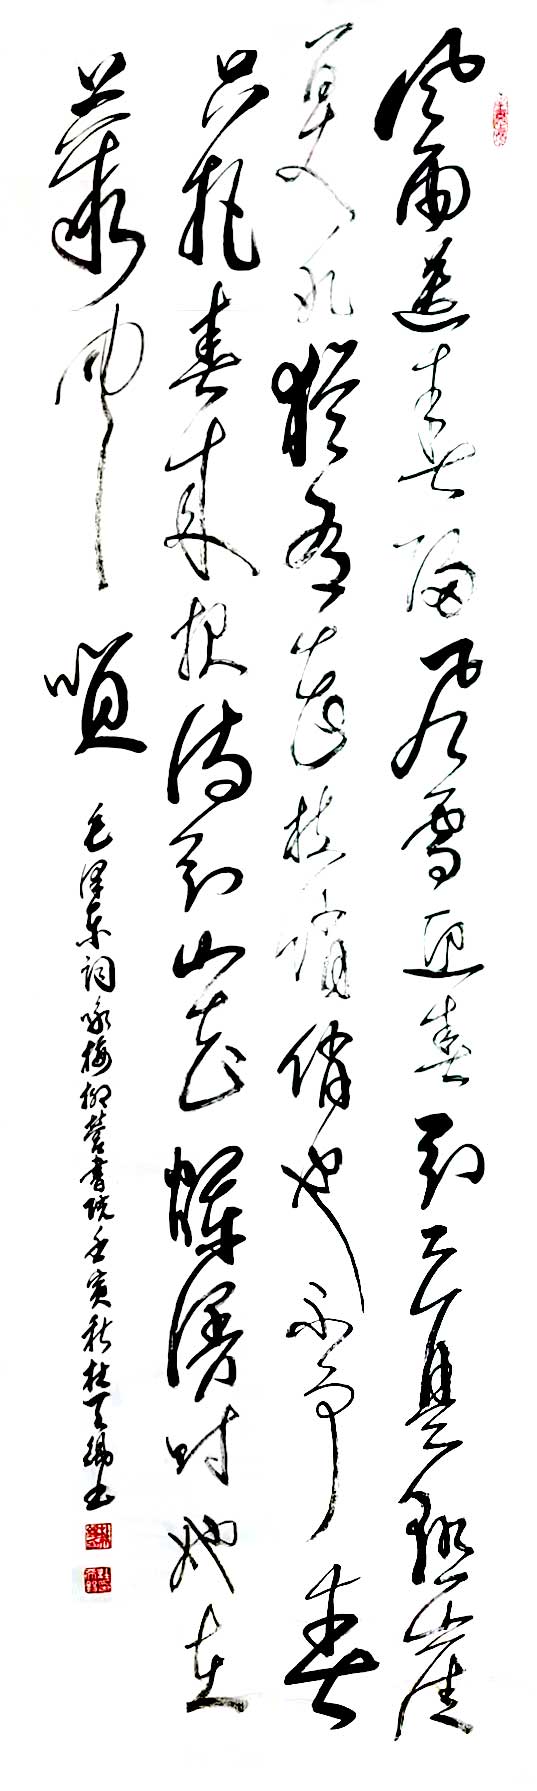 风雨送春归飞雪迎春到已是悬崖
百丈冰犹有花枝俏俏也不争春
只把春来报待到山花烂漫时她在
丛中笑
毛泽东词咏梅柳营書院壬寅秋杜天锡书